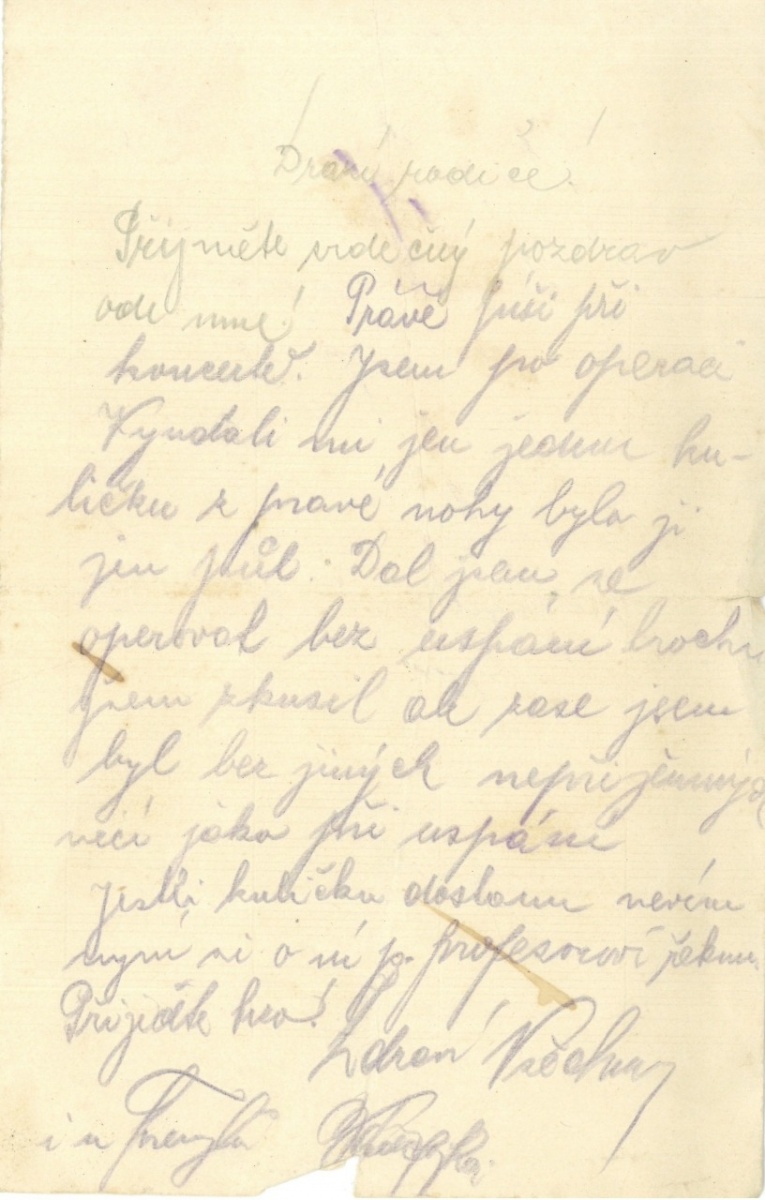 Drazí rodiče!
Přijměte srdečný pozdrav
ode mne! Právě píši při
koncertě. Jsem po operaci
Vyndali mi jen jednu ku-
ličku z pravé nohy byla ji
jen půl. Dal jsem se
operovat bez uspání trochu
jsem zkusil ale zase jsem
byl bez jiných nepříjemných
věcí jako při uspání
Jestli kuličku dostanu nevím
nyní si o ní p. profesorovi řeknu.
Přijeďte hro!
Zdraví Všechny
i u